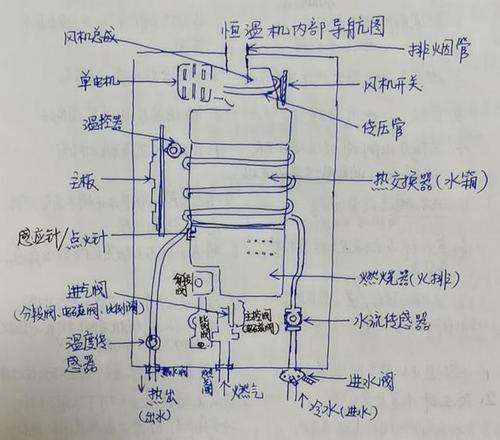 恒温机内部导航图
风机总成
排火烟管
单电机
风机开关
温控器
低压管
主板
热交换器(水箱)
感应针/点火针
燃烧器(火排)
进气阀
(分段阀、电磁阀、比例阀)
分段阀
比例阀
主控阀
(电磁阀)
水流传感器
温度传
感器
热水阀
燃气阀
进水阀
热出
(出水)
燃气
冷水(进水)